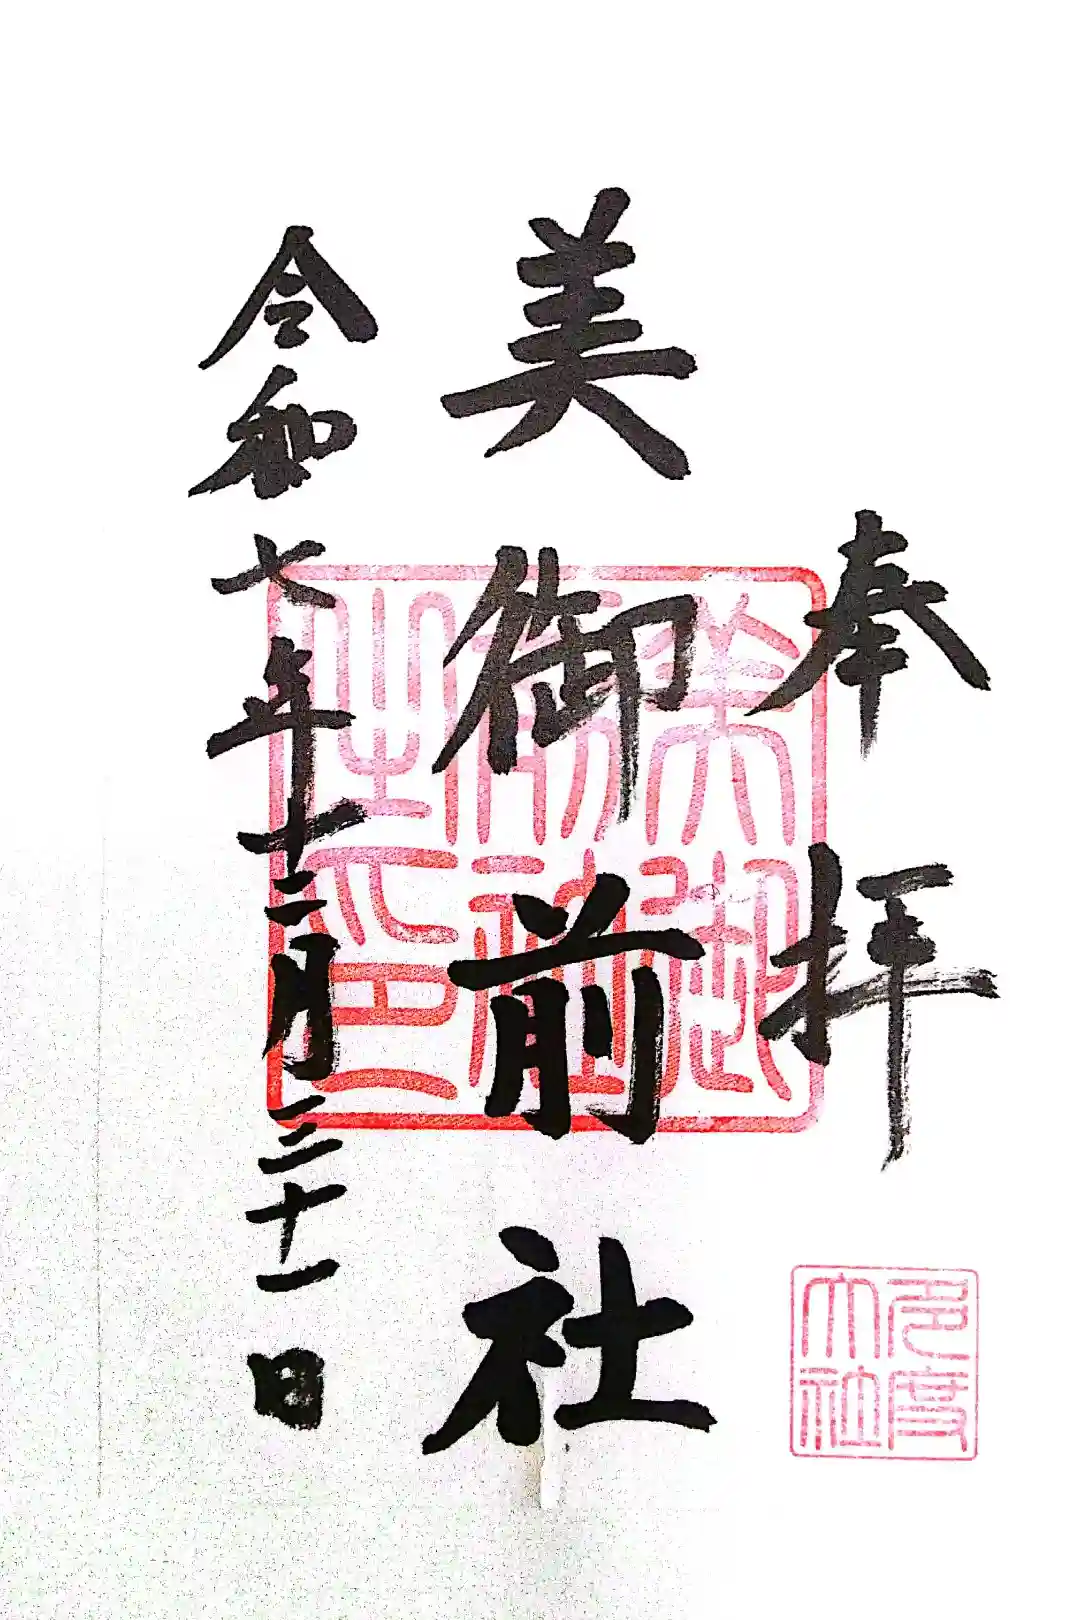 奉拝
美御前社
令和七年十二月二十一日
多度大社